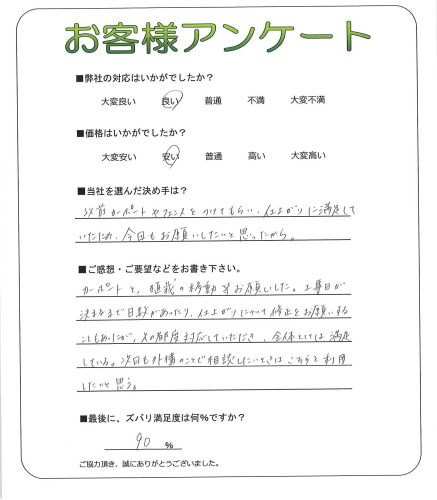 お客様アンケート
■弊社の対応はいかがでしたか？
大変良い 良い 普通 不満 大変不満
■価格はいかがでしたか？
大変安い 安い 普通 高い 大変高い
■当社を選んだ決め手は？
以前カーポートやフェンスをつけてもらい、仕上がりに満足して
いたため、今回もお願いしたいと思ったから。
■ご感想・ご要望などをお書き下さい。
カーポートと、植栽の移動をお願いした。工事日が
決まるまで日数があったり、仕上がりについて修正をお願いする
こともあったが、その都度対応していただき、全体としては満足
している。次回も外構のことで相談したいときはこちらを利用
したいと思う。
■最後に、ズバリ満足度は何%ですか？
90 %
ご協力頂き、誠にありがとうございました。